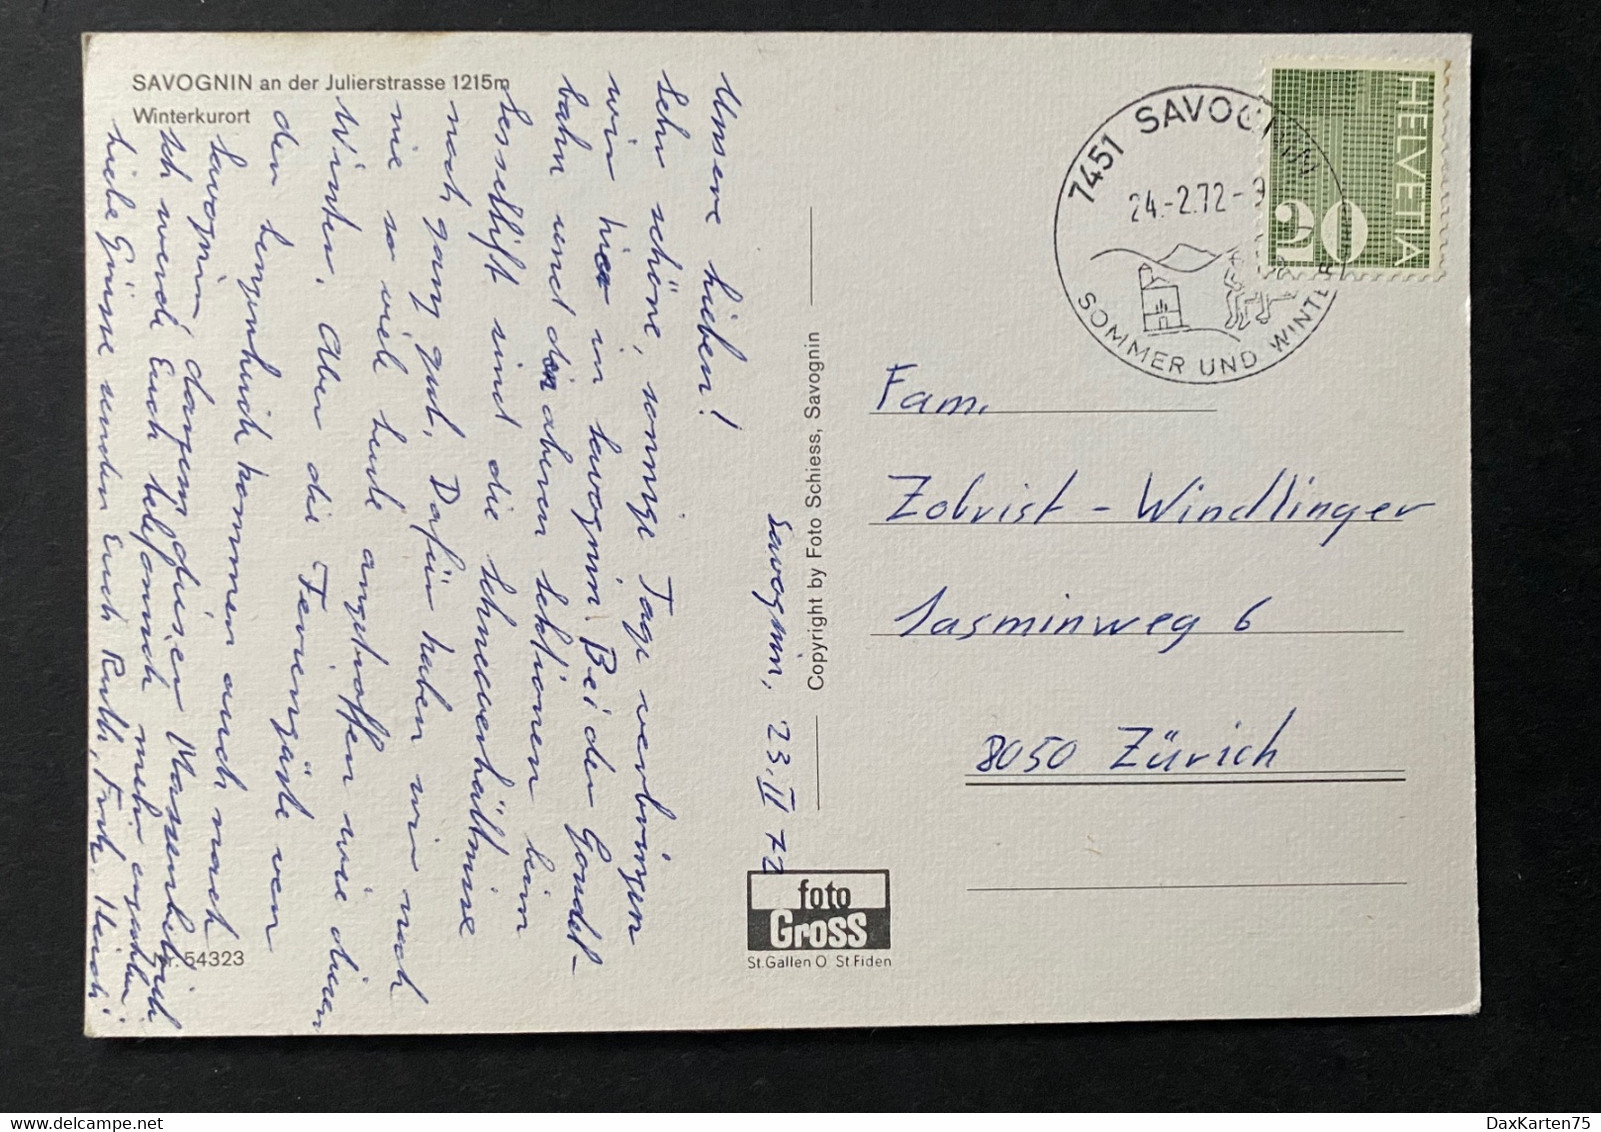 SAVOGNIN an der Julierstrasse 1215m
Winterkurort
Savognin, 23. II 72
Unsere Lieben!
Sehr schöne, sonnige Tage verbringen
wir hier in Savognin. Bei der Gondel-
bahn und den oberen Sektionen beim
Sessellift sind die Schneeverhältnisse
noch ganz gut. Dafür haben wir noch
nie so viele Leute angetroffen wie diesen
Winter. Aber die Feriengäste von
den Lenzerheide kommen auch nach
Savognin, darum dieser Massenbetrieb
Ich werde Euch telefonisch mehr erzählen.
Liebe Grüsse senden Euch Ruth, Heidi
Nr. 54323
Copyright by Foto Schiess, Savognin
foto
Gross
St.Gallen O St.Fiden
7451 SAVOGNIN
24.-2.72-
SOMMER UND WINTER
HELVETIA
20
Fam.
Zobrist - Windlinger
Jasminweg 6
8050 Zürich
DaxKarten75